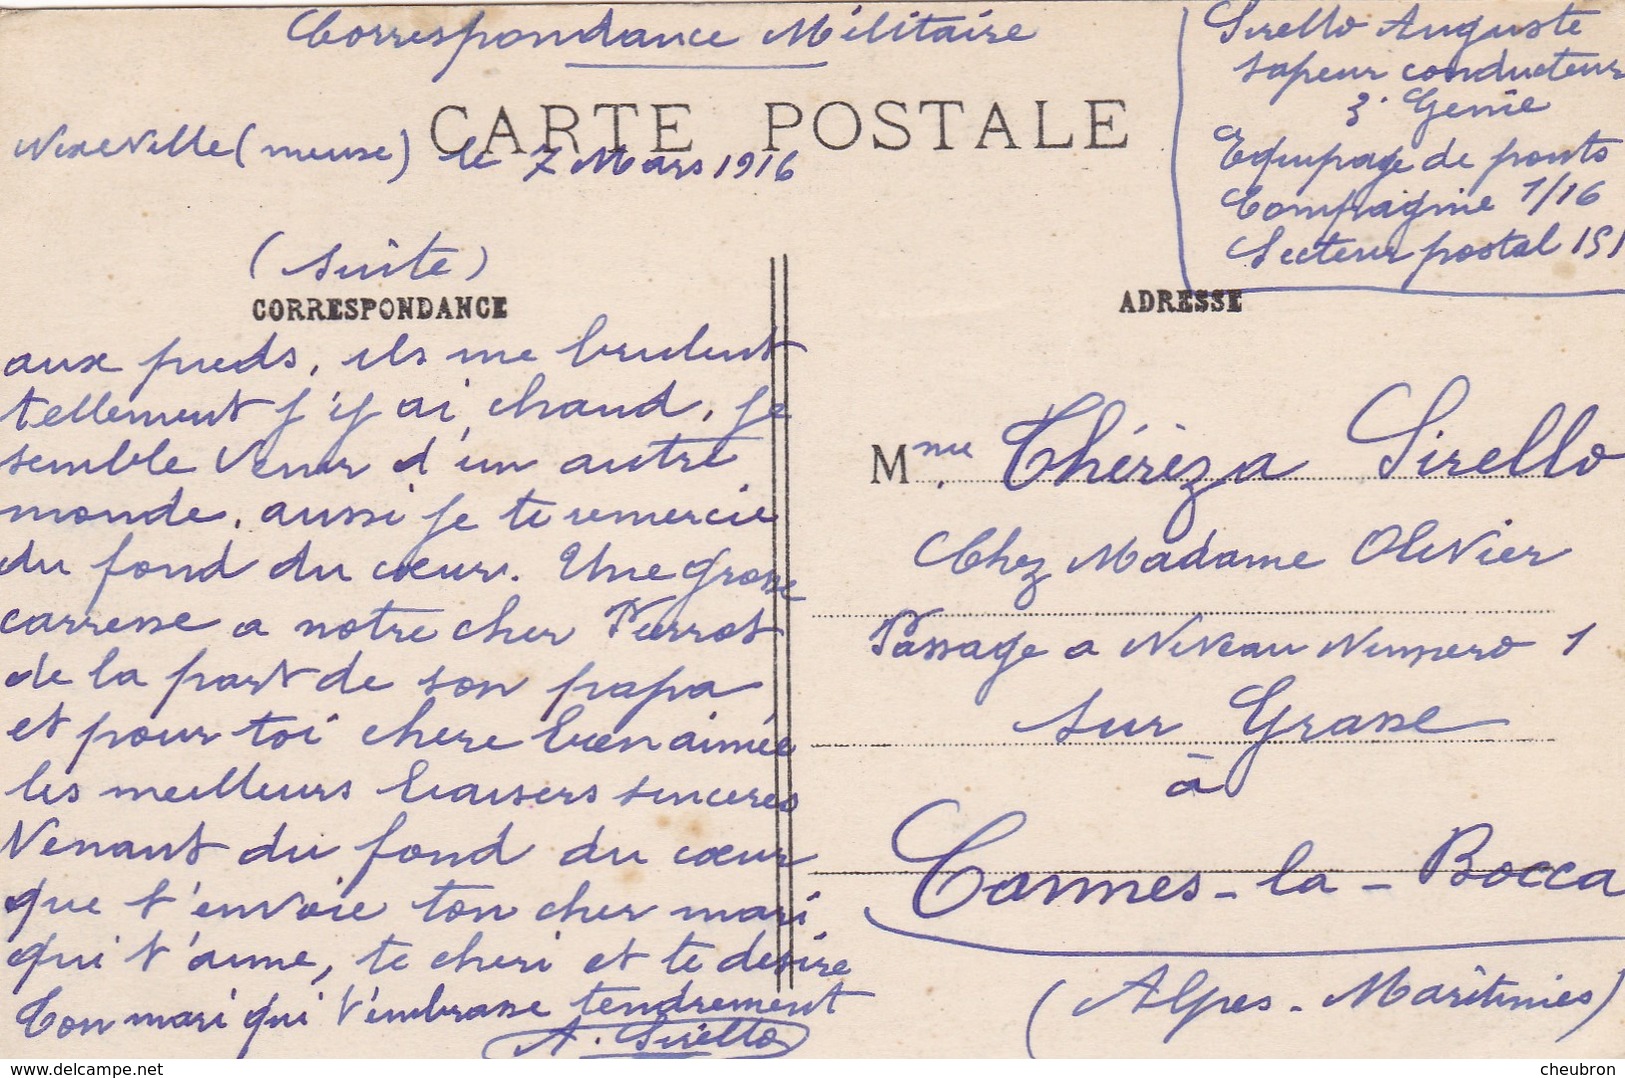 Correspondance Militaire
Sirello Auguste
sapeur conducteur
3. Genie
Equipage de ponts
Compagnie 7/16
Secteur postal 151
CARTE POSTALE
Nixeville (meuse) le 7 Mars 1916
(suite)
CORRESPONDANCE
aux pieds, ils me brulent
tellement j'y ai chaud, je
semble venir d'un autre
monde, aussi je te remercie
du fond du cœur. Une grosse
carresse a notre cher Pierrot
de la part de son papa
et pour toi chere bien aimée
les meilleurs baisers sinceres
Venant du fond du cœur
que t'envoie ton cher mari
qui t'aime, te cheri et te desire
Ton mari qui t'embrasse tendrement
A. Sirello
ADRESSE
Mme Thérèza Sirello
Chez Madame Olivier
Passage a Niveau Numero 1
sur Grasse
à
Cannes-la-Bocca
(Alpes-Maritimes)
delcampe.net
cheubron